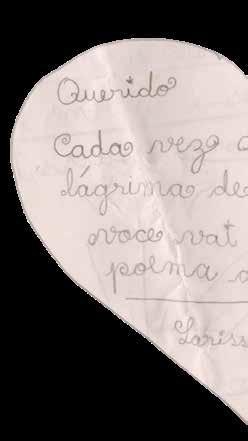 Querido
Cada vez
lágrima de
voce vat
poema a
Lariss